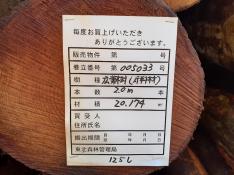 毎度お買上げいただき
ありがとうございます。
販売物件 第 号
巻立番号 第 005033 号
樹種
本数 2.0m
材積 20.174 m³
買受人
住所氏名
搬出期限 自 年 月 日
至 年 月 日
東北森林管理局
125L